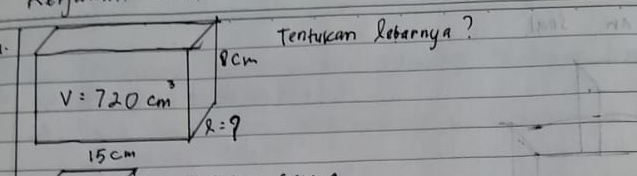 Tentukan lebarnya?
8cm
V = 720 cm³
l = ?
15 cm